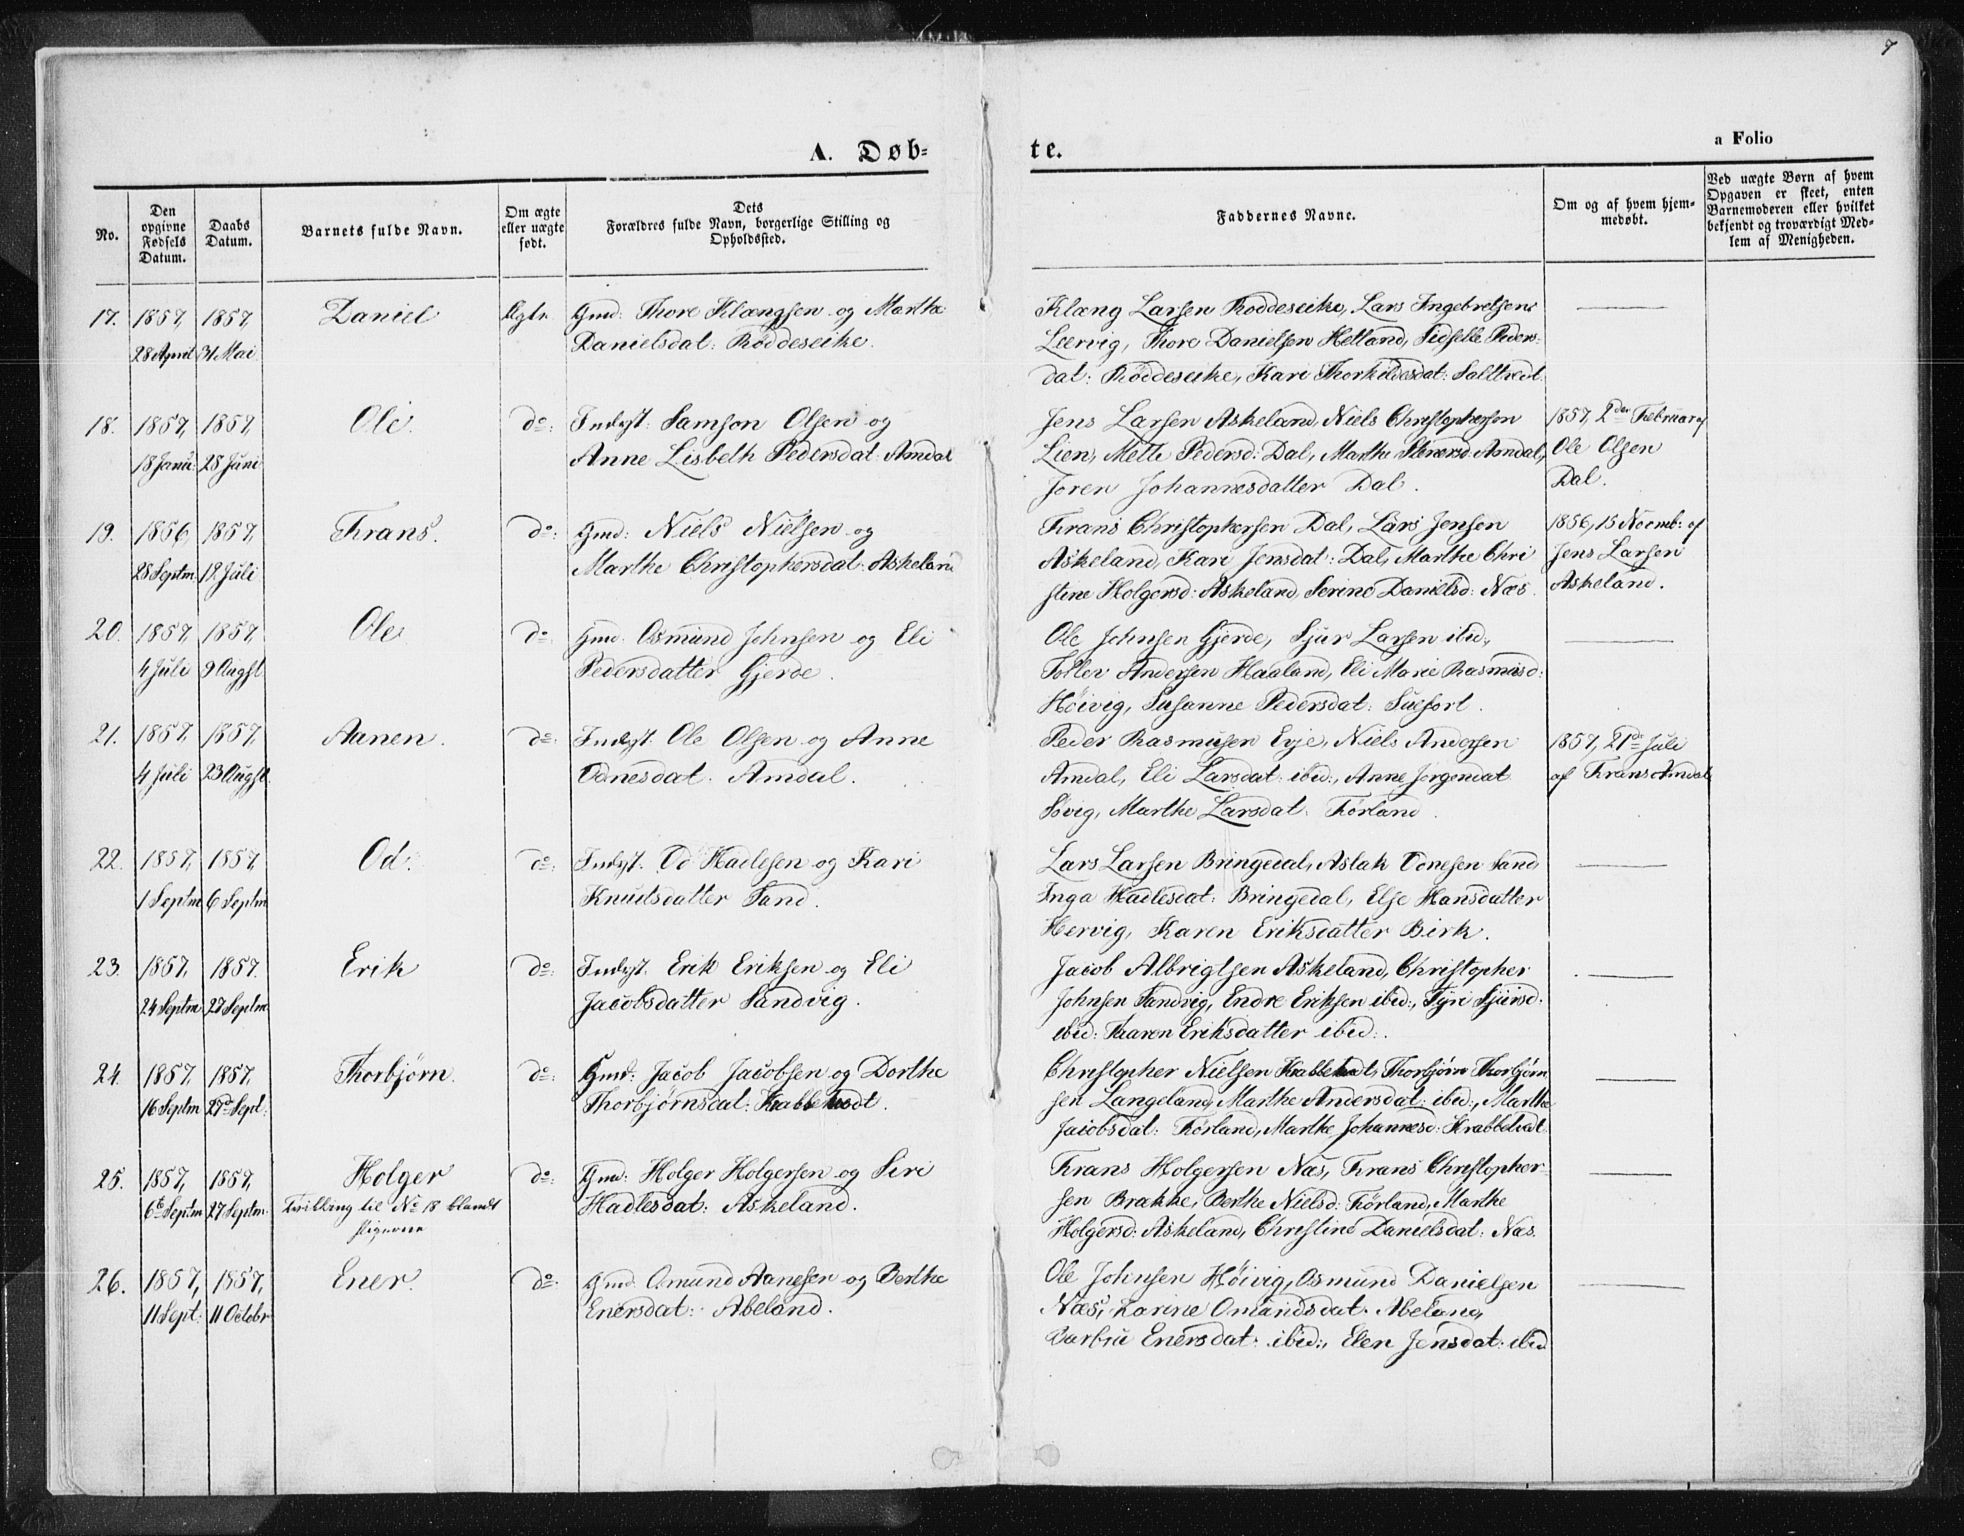 7
A. Døb-
te.
a Folio
No.
Den opgivne Fødsels Datum.
Daabs Datum.
Barnets fulde Navn.
Om ægte eller uægte født.
Dets Forældres fulde Navn, borgerlige Stilling og Opholdssted.
Faddernes Navne.
Om og af hvem hjemmedøbt.
Ved uægte Børn af hvem Opgaven er skeet, enten Barnemoderen eller hvilket bekjendt og troværdigt Medlem af Menigheden.
17. 1857, 1857, Daniel Ægte Gmd: Thore Klængsen og Marthe
28 April 31 Mai Danielsdat: Røddeseike.
Klæng Larsen Røddeseike, Lars Ingebretsen
Leervig, Thore Danielsen Hetland, Sidselle Peders-
dat: Røddeseike, Kari Thorkildsdat: Salttvedt.
18. 1857, 1857, Ole. do: Indst: Samson Olsen og
18 Janu: 28 Juni Anne Lisbeth Pedersdat: Amdal
Jens Larsen Askeland, Niels Christophersen
Lien, Mette Pedersd: Dal, Marthe Amdal,
Joren Johannesdatter Dal.
1857, 2den Februar af
Ole Olsen
Dal.
19. 1856, 1857, Frans. do: Gmd: Niels Nielsen og
28 Septm 19 Juli Marthe Christophersdat: Askeland
Frans Christophersen Dal, Lars Jensen
Askeland, Kari Jensdat: Dal, Marthe Chri
stine Holgersd: Askeland, Serine Danielsd: Næs.
1856, 15 Novemb: af
Jens Larsen
Askeland.
20. 1857, 1857, Ole do: Gmd: Osmund Johnsen og Eli
4 Juli 9 Augst. Pedersdatter Gjerde.
Ole Johnsen Gjerde, Sjur Larsen ibid:,
Toller Andersen Haaland, Eli Marie Rasmusd:
Høivig, Susanne Pedersdat: Suefort.
21. 1857, 1857, Aanen. do: Indst: Ole Olsen og Anne
4 Juli 23 Augst. Odnesdat. Amdal.
Peder Rasmusen Evje, Niels Andersen
Amdal, Eli Larsdat: ibid:, Anne Jørgendat
Søvig, Marthe Larsdat: Førland.
1857, 21de Juli
af Frans Amdal
22. 1857, 1857, Od. do: Indst: Od Hadlesen og Kari
1 Septm 6 Septm Knudsdatter Sand.
Lars Larsen Bringedal, Aslak Odnesen Sand,
Inga Hadlesdat: Bringedal, Else Hansdatter
Hervig, Karen Eriksdatter Birk.
23. 1857, 1857. Erik do: Indst: Erik Eriksen og Eli
24 Septm 27 Septm Jacobsdatter Sandvig.
Jacob Albrigtsen Askeland, Christopher
Johnsen Sandvig, Endre Eriksen ibid:, Syri Sjursd:
ibid: Kaaren Eriksdatter ibid:.
24. 1857, 1857, Thorbjørn. do: Gmd: Jacob Jacobsen og Dorthe
16 Septm 27de Sept: Thorbjørnsdat: Krabbetvedt.
Christopher Nielsen Krabbetvedt, Thorbjørn Thorbjørn
sen Langeland, Marthe Andersdat: ibid:, Marthe
Jacobsdat: Førland, Marthe Johannesd: Krabbetvedt
25. 1857, 1857, Holger do: Gmd: Holger Holgersen og Siri
6te Septm 27 Septm. Tvilling til No 18 blandt Hadlesdat: Askeland.
Pigerne
Frans Holgersen Næs, Frans Christopher-
sen Brakke, Berthe Nielsd: Førland, Marthe
Holgersd: Askeland, Christine Danielsdat: Næs.
26. 1857, 1857, Ener. do: Gmd: Omund Aanesen og Berthe
11 Sept: 11 Octobr Enersdat: Abeland.
Ole Johnsen Høivig, Osmund Danielsen
Næs, Karine Omundsdat. Abeland,
Barbru Enersdat: ibid:, Elen Jensdat: ibid